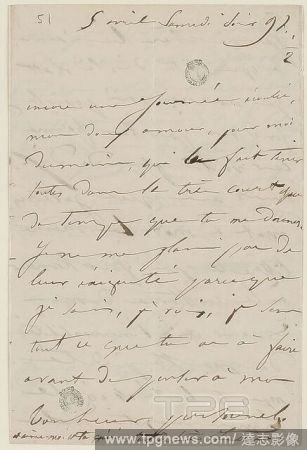 51
5 avril Samedi soir 9h.
2
encore une journée écoulée,
mon doux amour, pour moi
du moins, qui les fait tenir
toutes dans le très court espace
de temps que tu me donnes.
Je ne me plains pas de
leur exiguïté parce que
je sais, je vois, je sens
tout ce que tu as à faire
avant de penser à mon
bonheur personnel
TPG
www.tpgnews.com / 達志影像